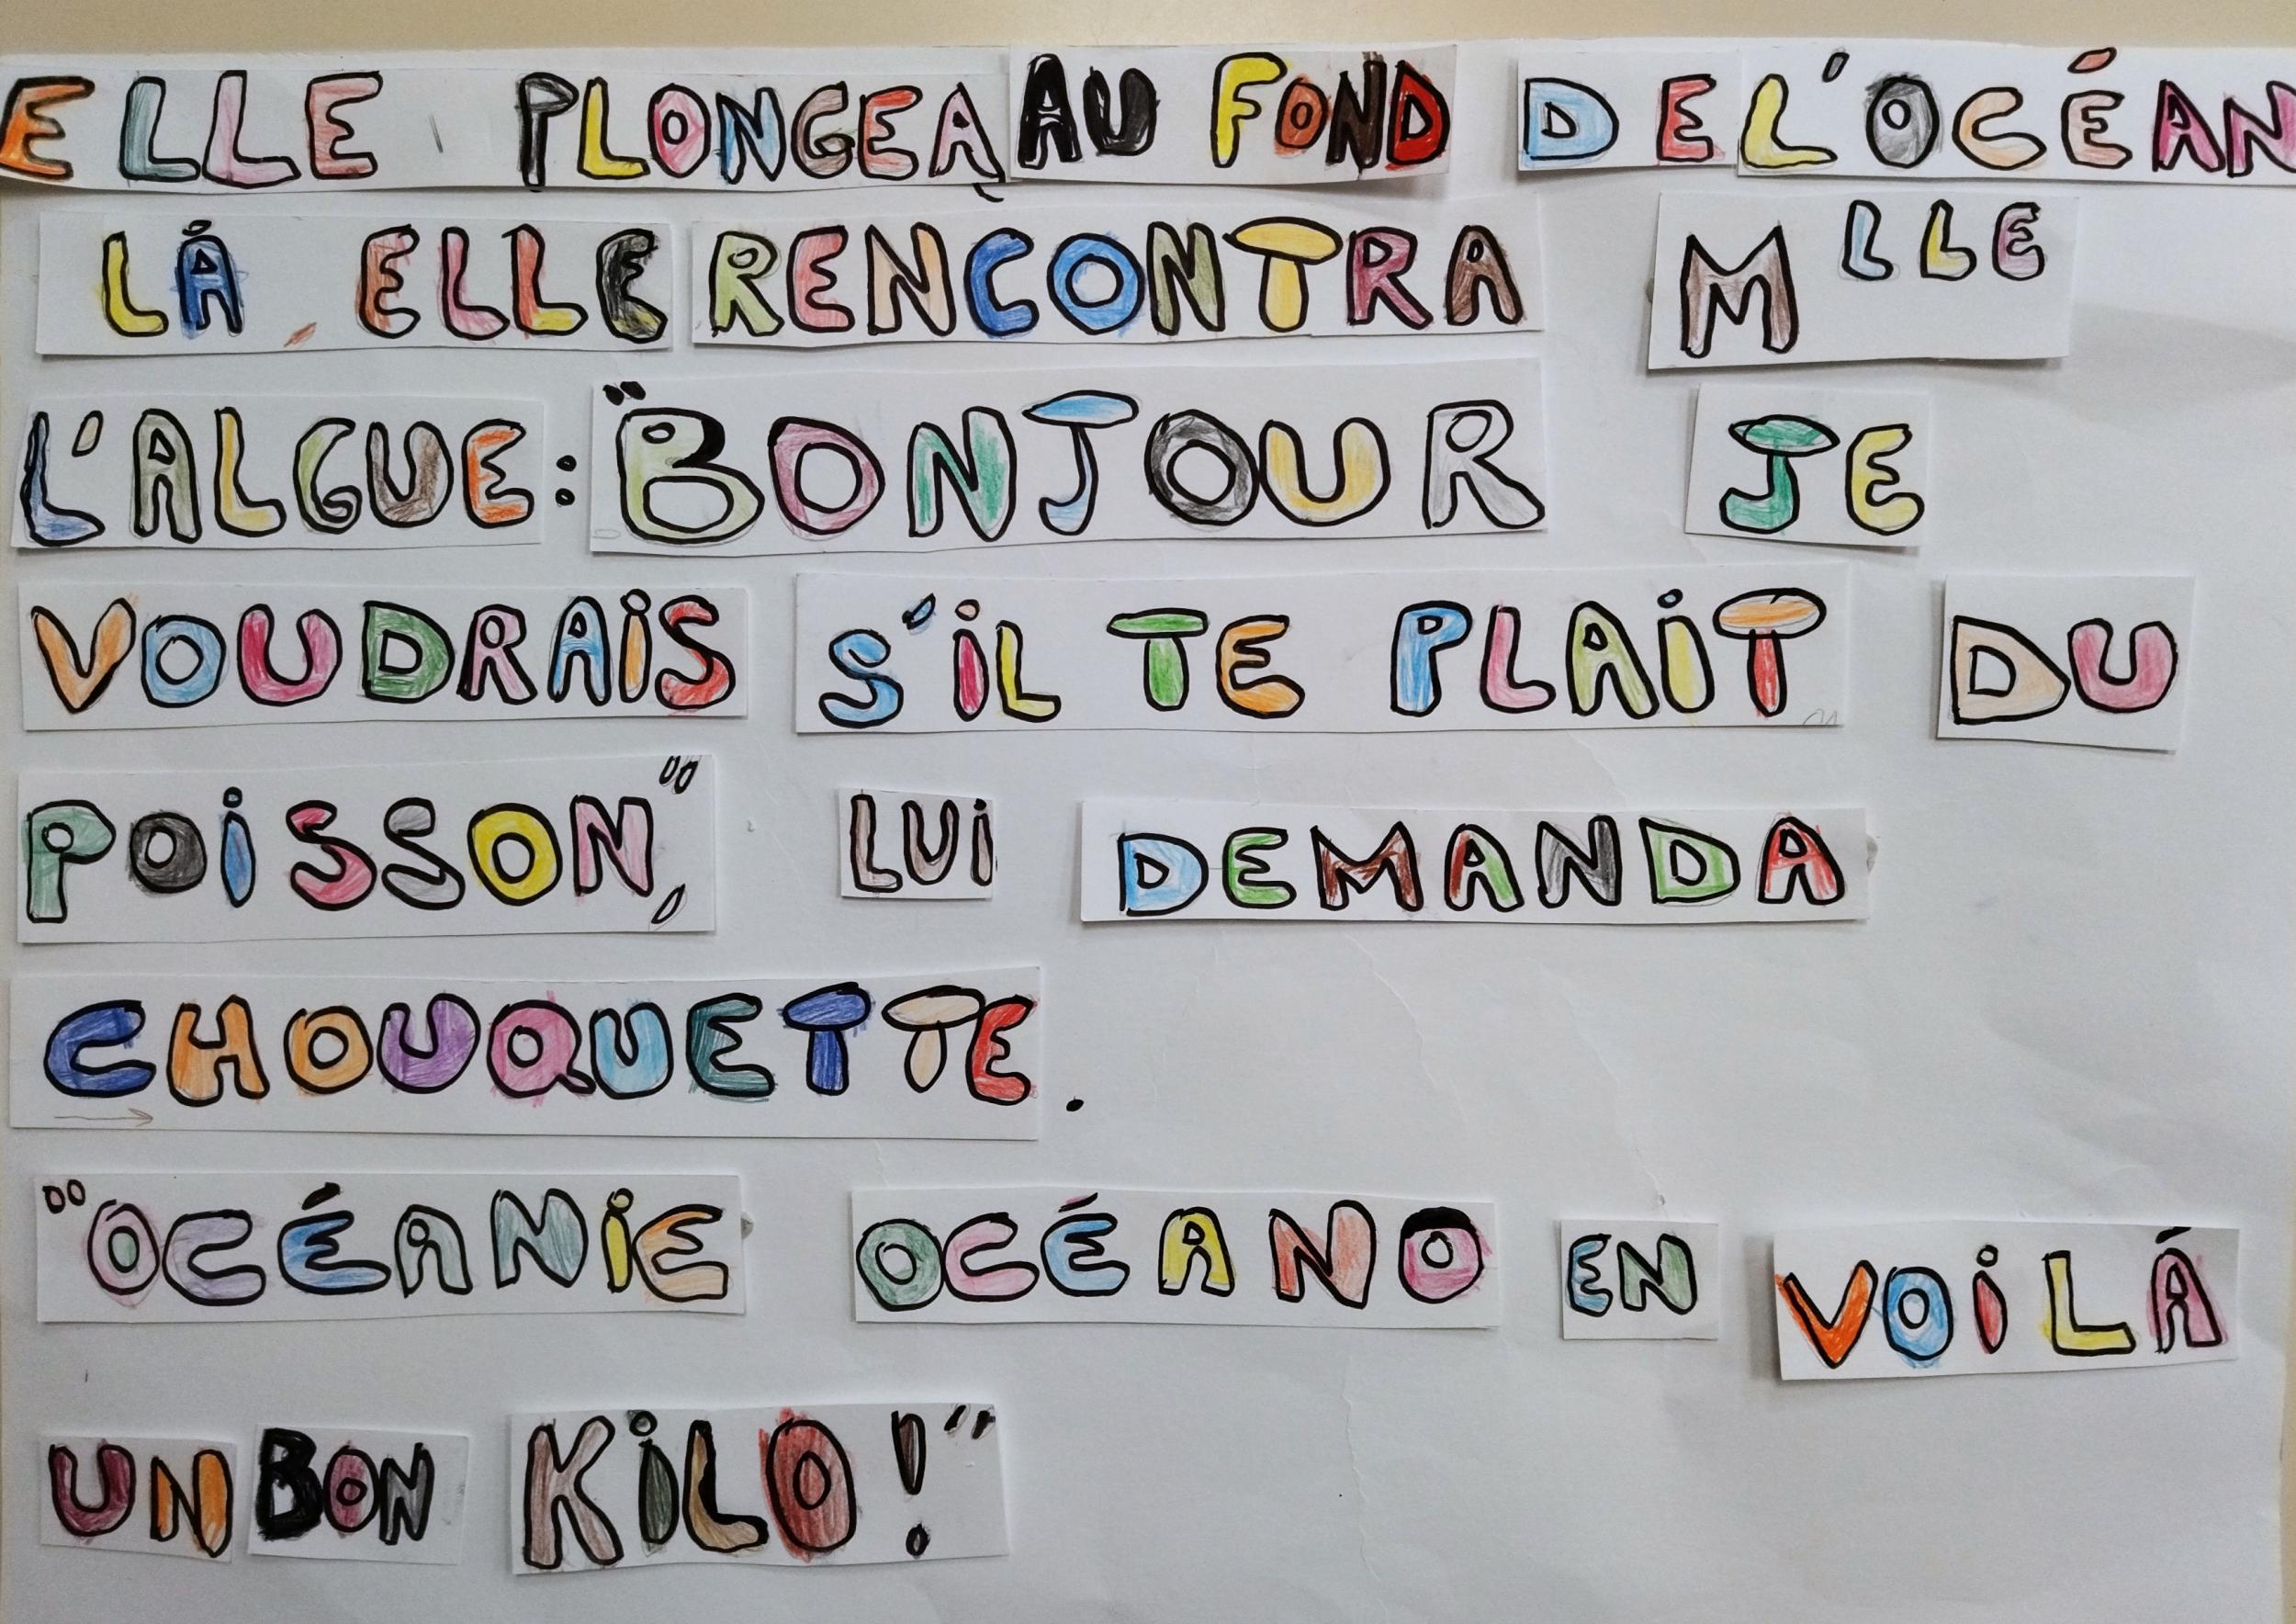 ELLE PLONGEA AU FOND DE L'OCÉAN
LÀ, ELLE RENCONTRA MLLE
L'ALGUE : "BONJOUR JE
VOUDRAIS S'iL TE PLAiT DU
POiSSON", LUi DEMANDA
CHOUQUETTE.
"OCÉANiE OCÉANO EN VOiLÀ
UN BON KiLO !"